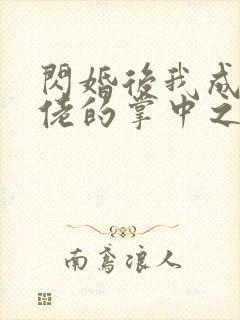 閃婚後我成
佬的掌中之
南鳶浪人